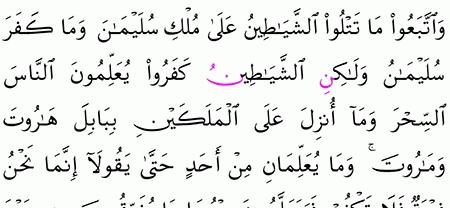 وَٱتَّبَعُوا۟ مَا تَتْلُوا۟ ٱلشَّيَـٰطِينُ عَلَىٰ مُلْكِ سُلَيْمَـٰنَ وَمَا كَفَرَ
سُلَيْمَـٰنُ وَلَـٰكِنِ الشَّيَـٰطِينُ كَفَرُوا۟ يُعَلِّمُونَ النَّاسَ
السِّحْرَ وَمَآ أُنزِلَ عَلَى الْمَلَكَيْنِ بِبَابِلَ هَـٰرُوتَ
وَمَـٰرُوتَ ۚ وَمَا يُعَلِّمَانِ مِنْ أَحَدٍ حَتَّىٰ يَقُولَآ إِنَّمَا نَحْنُ